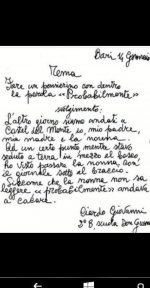 Bari, 14 Gennaio
Tema
Fare un pensierino con dentro
la parola «Probabilmente»
svolgimento:
L'altro giorno siamo andati a
Castel del Monte io, mio padre,
mia madre e la nonna.
Ad un certo punto, mentre stavo
seduto a terra in mezzo al bosco,
ho visto passare la nonna con
il giornale sotto al braccio.
Siccome che la nonna non sa
leggere, «probabilmente» andava
a cacare.
Giovanni
3ª B, scuola Don